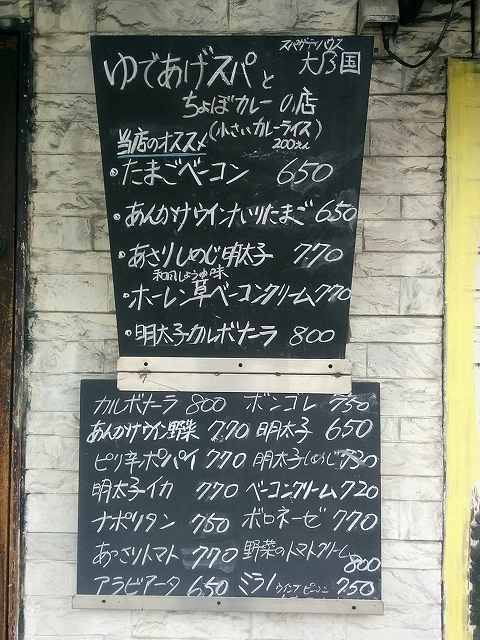 スパゲティハウス
ゆであげスパと 大乃国
ちょぼカレーの店
当店のオススメ (小さいカレーライス)
200えん
・たまごベーコン 650
・あんかけウインナいりたまご 650
・あさりしめじ明太子 770
和風しょうゆ味
・ホーレン草ベーコンクリーム 770
・明太子カルボナーラ 800
カルボナーラ 800 ボンゴレ 750
あんかけウイン野菜 770 明太子 650
ピリ辛ポパイ 770 明太子しめじ 720
明太子イカ 770 ベーコンクリーム 720
ナポリタン 750 ボロネーゼ 770
あさりトマト 770 野菜のトマトクリーム
800
アラビアータ 650 ミラノ 750